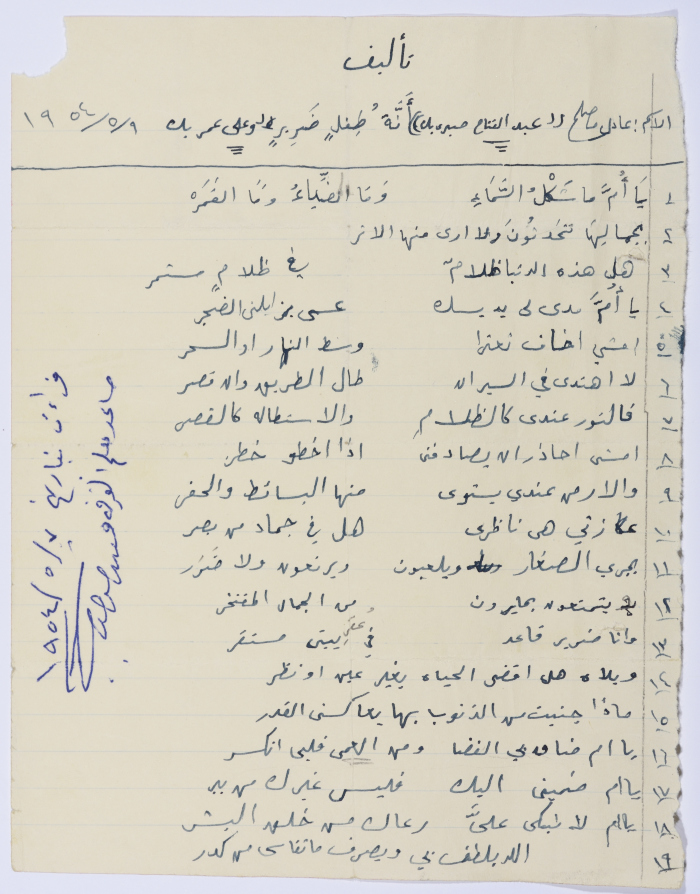 تأليف
الاسم: عادل صالح عبد الفتاح صبره بك (أَنَّةُ طِفلٍ ضَرِيرٍ) وعلى عمر بك ١٩٥٤/٥/٩
١ يَا أُمَّ ما شَكْلُ السَّمَاءِ وَمَا الضِّيَاءُ وَمَا القَمَرْ
٢ بجمالِهَا تتحَدثونَ ولا ارى منها الاثر
٣ هل هذه الدنيا ظلامٌ في ظلامٍ مستمر
٤ يا أُمَّ مدى لى يديك عسى يزايلنى الضجر
٥ امشي اخاف تعثرا وسط النهار او السحر
٦ لا اهتدى في السير ان طال الطريق وان قصر
٧ فالنور عندى كالظلامِ والاستطاله كالقصر
٨ امشى احاذر ان يصادفنى اذا اخطو خطر
٩ والارض عندى يستوى منها البسائط والحفر
١٠ عكازتي هى ناظرى هل في جماد من بصر
١١ يجري الصغار ويلعبون ويرتعون ولا ضَرَر
١٢ يتمتعون بما يرون من الجمال المفتخر
١٣ وانا ضرير قاعد في عقر بيتى مستقر
١٤ ويلاه هل اقضى الحياه بغير علم او نظر
١٥ ماذا جنيت من الذنوب بها يعاكسنى القدر
١٦ يا ام ضاق بي الفضا ومن العمى قلبى انكسر
١٧ يا ام ضمينى اليك فليس غيرك من يبر
١٨ يا ام لا تبكى علىَّ رعاك من خلق البشر
١٩ الله يلطف بي ويصرف ما تقاسى من كدر
قراءت بتاريخ ١٩٥٤/٥/٧